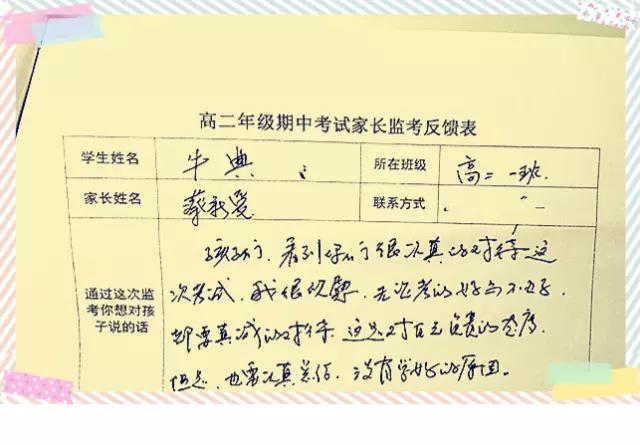 高二年级期中考试家长监考反馈表
学生姓名 牛典 所在班级 高二一班
家长姓名 联系方式
通过这次监考你想对孩子说的话
孩子们，看到你们很认真的对待这
次考试，我很欣慰，无论考的好与不好，
都要真诚的对待，这是对自己负责的态度，
但是，也需认真总结，没有学好的原因。